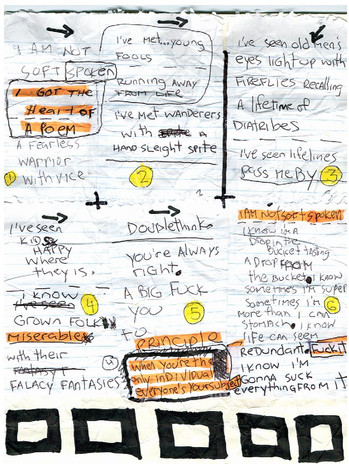 I AM NOT
SOFT SPOKEN
I GOT THE
HEART OF
A POEM
A FEARLESS
WARRIOR
WITH VICE
1
I'VE MET...YOUNG
FOOLS
RUNNING AWAY
FROM LIFE
I'VE MET WANDERERS
WITH A
HAND SLEIGHT SPITE
2
I'VE SEEN OLD MEN'S
EYES LIGHT UP WITH
FIREFLIES RECALLING
A LIFETIME OF
DIATRIBES
I'VE SEEN LIFELINES
PASS ME BY
3
I'VE SEEN
KIDS
HAPPY
WHERE
THEY IS.
I KNOW
4
GROWN FOLK
MISERABLE
WITH THEIR
FANTASY
FALACY FANTASIES
DOUBLETHINK
YOU'RE ALWAYS
RIGHT.
A BIG FUCK
YOU
5
TO
PRINCIPLE
WHEN YOU'RE THE
ONLY INDIVIDUAL
EVERYONE'S YOUR SUBJECT
I AM NOT SOFT SPOKEN
I KNOW I'M A
DROP IN THE
BUCKET TASING
A DROP FROM
THE BUCKET. I KNOW
SOMETIMES I'M SUPER
SOMETIMES I'M
6
MORE THAN I CAN
STOMACH. I KNOW
LIFE CAN SEEM
REDUNDANT. FUCK IT
I KNOW I'M
GONNA SUCK
EVERYTHING FROM IT